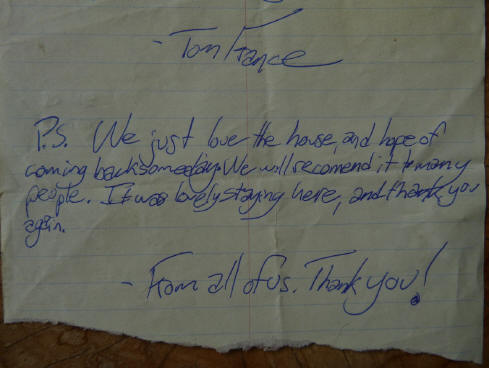 - Tom France
P.S. We just love the house, and hope of
coming back someday. We will recomend it to many
people. It was lovely staying here, and thank you
again.
- From all of us. Thank you!